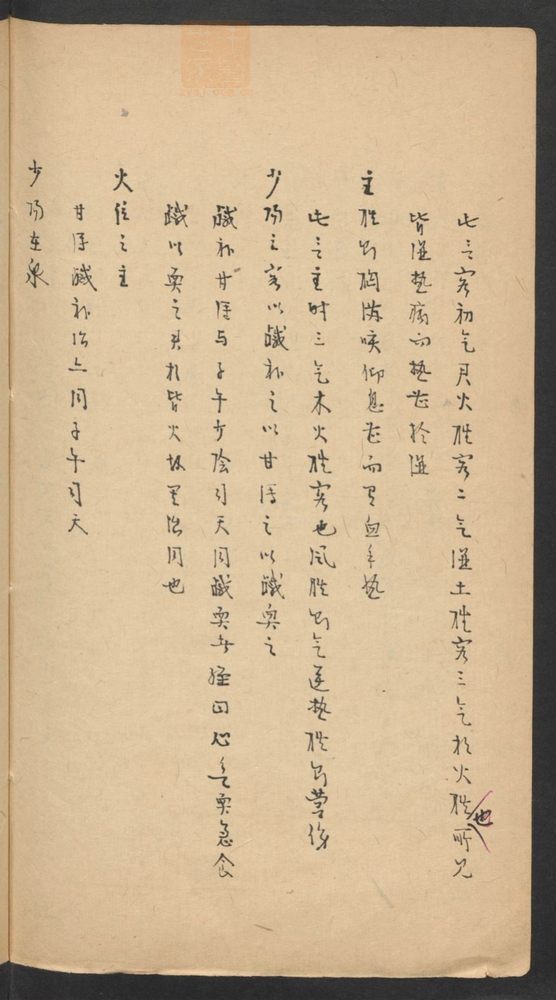 此言客初气君火胜客二气湿土胜客三气相火胜也所见
皆湿热病而热甚於湿
主胜则胸满咳仰息甚而有血手热
此言主时三气木火胜客也风胜则气逆热胜则营伤
少阳之客以咸补之以甘泻之以咸耎之
咸补甘泻与子午少阴司天同咸耎者经曰心气耎急食
咸以耎之君相皆火故其治同也
火位之主
甘泻咸补治亦同子午司天
少阳在泉